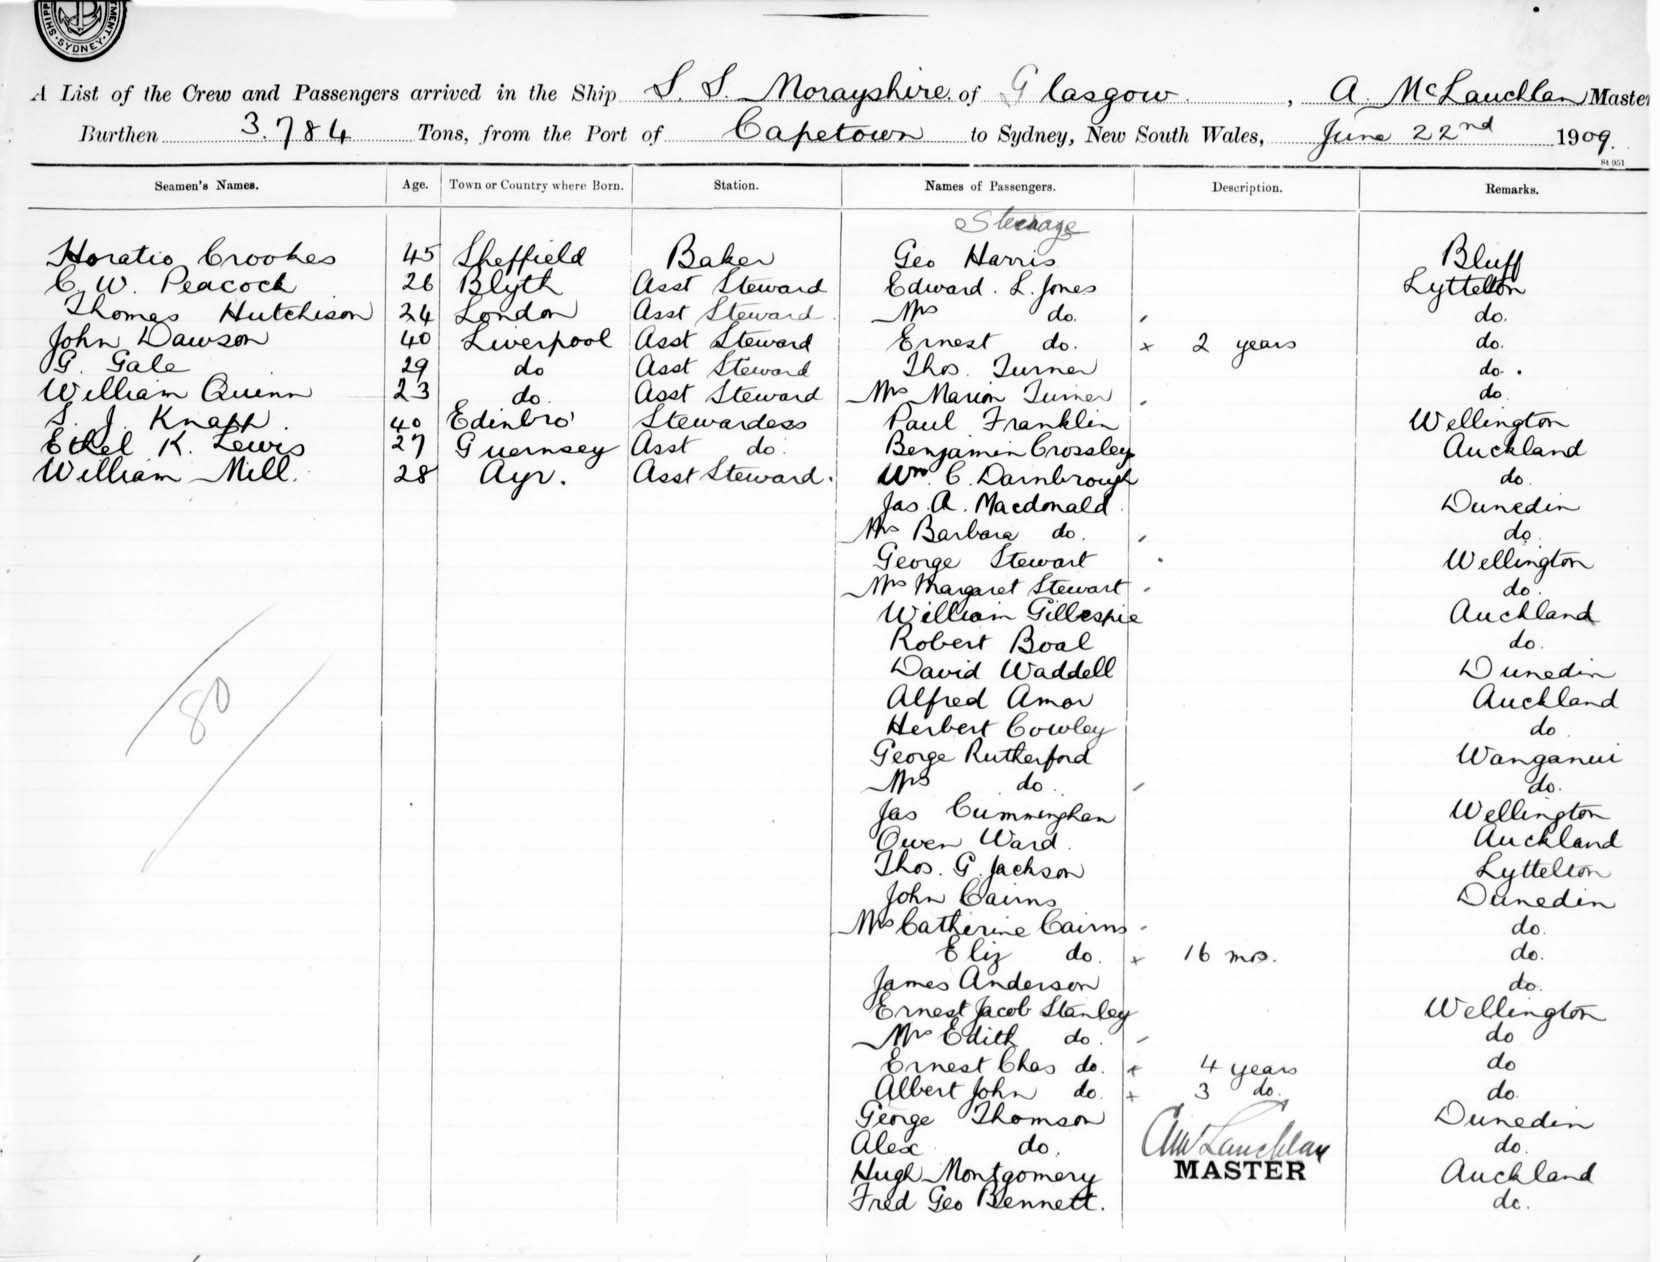 SHIPP MENT. SYDNEY.
A List of the Crew and Passengers arrived in the Ship S. S. Morayshire, of Glasgow, A. McLauchlan Master
Burthen 3.784 Tons, from the Port of Capetown to Sydney, New South Wales, June 22nd 1909.
St 951
Seamen's Names. Age. Town or Country where Born. Station. Names of Passengers. Description. Remarks.
Steerage
Horatio Crookes 45 Sheffield Baker Geo Harris Bluff
C. W. Peacock 26 Blyth Asst Steward Edward. L. Jones Lyttelton
Thomas Hutchison 24 London Asst Steward Mrs do. do.
John Dawson 40 Liverpool Asst Steward Ernest do. x 2 years do.
G. Gale 29 do Asst Steward Thos. Turner do.
William Quinn 23 do. Asst Steward Mrs Marion Turner do.
S. J. Knapp. 40 Edinbro' Stewardess Paul Franklin Wellington
Ethel K. Lewis 27 Guernsey Asst do. Benjamin Crossley Auckland
William Mill. 28 Ayr. Asst Steward. Wm. C. Darnbrough do.
Jas. A. Macdonald. Dunedin
Mrs Barbara do. do.
George Stewart Wellington
Mrs Margaret Stewart do.
William Gillespie Auckland
Robert Boal do.
David Waddell Dunedin
Alfred Amor Auckland
Herbert Cowley do
George Rutherford Wanganui
Mrs do. do.
Jas Cunningham Wellington
Owen Ward. Auckland
Thos. G. Jackson Lyttelton
John Cairns Dunedin
Mrs Catherine Cairns do.
Eliz do. x 16 mos. do.
James Anderson do.
Ernest Jacob Stanley Wellington
Mrs Edith do. do
Ernest Chas do. x 4 years do
Albert John do. x 3 do. do.
George Thomson Dunedin
Alex do. do.
Hugh Montgomery Auckland
Fred Geo Bennett. do.
80
A McLauchlan
MASTER